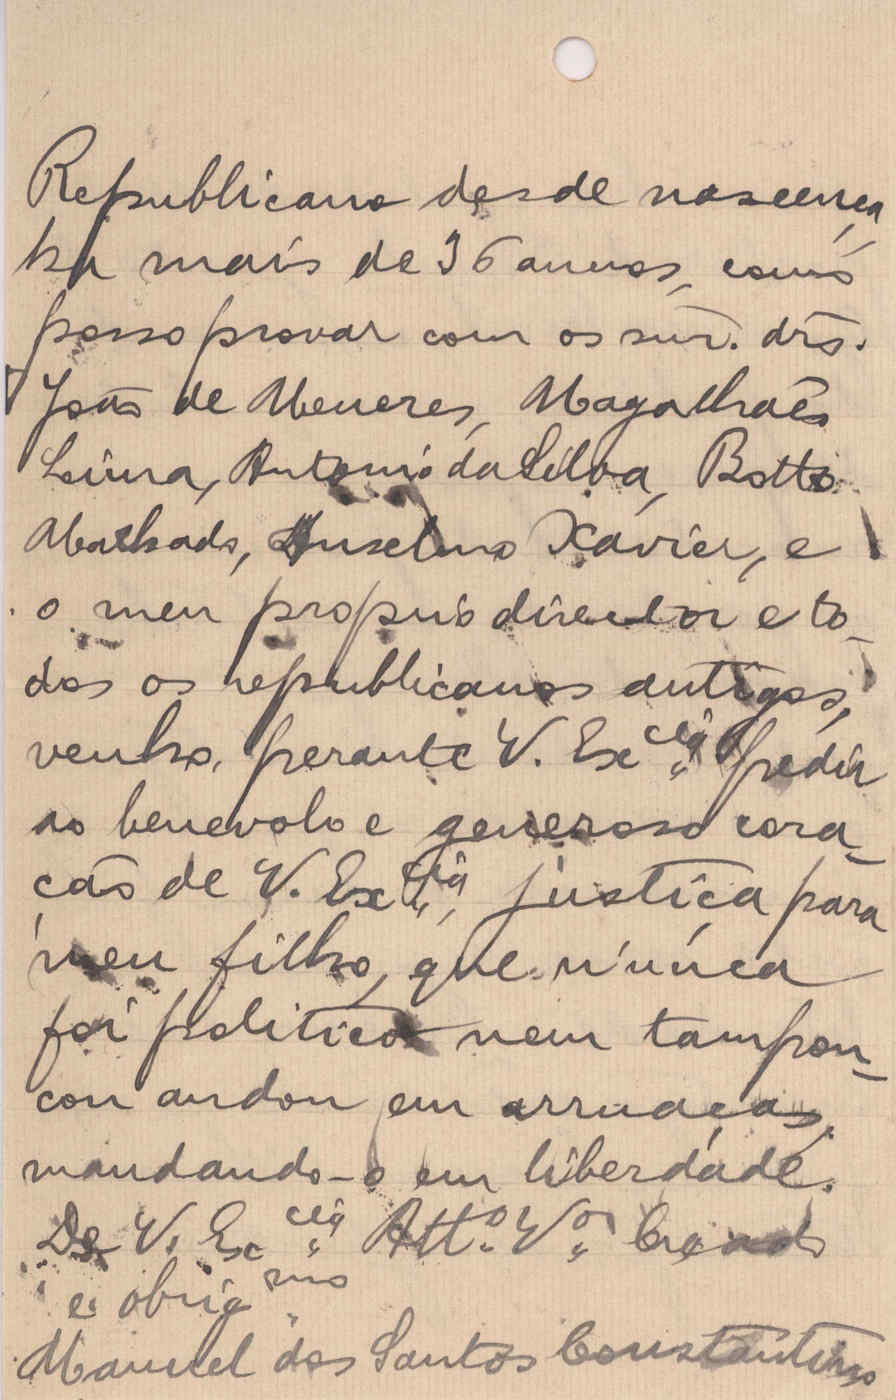 Republicano desde nascença,
ha mais de 36 annos, como
posso provar com os snr. drs.
João de Menezes, Magalhães
Lima, Antonio da Silva, Botto
Machado, Anselmo Xavier, e
o meu proprio director e to-
dos os republicanos antigos,
venho, perante V. Ex.cia pedir
ao benevolo e generoso cora-
ção de V. Ex.cia, justiça para
meu filho, que nunca
foi politico nem tampou-
cou andou em arruaças,
mandando-o em liberdade.
De V. Ex.cia Att.o V.o Creado
e obrig.mo
Manuel dos Santos Constantino